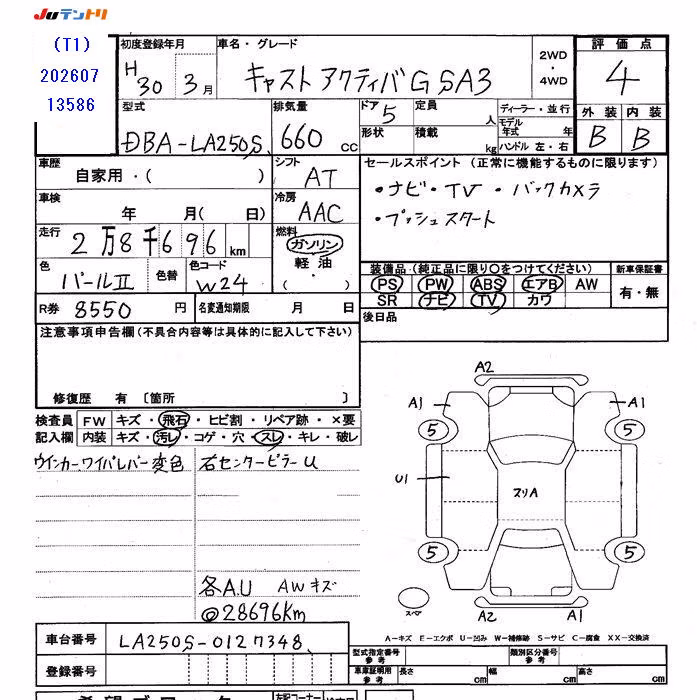 Juテントリ
(T1)
202607
13586
初度登録年月
H 30 3月
車名・グレード
キャスト アクティバ G SA3
2WD
・
4WD
評価点
4
外装 内装
B B
型式
DBA-LA250S
排気量
660 cc
ドア 5
形状
定員 人
積載 kg
ディーラー・並行
モデル年式 年
ハンドル 左・右
車歴
自家用・( )
シフト
AT
車検
年 月( 日)
冷房
AAC
走行
2万8千696km
燃料
ガソリン
軽油
・( )
色
パールⅡ
色替
色コード
W24
R券 8550 円
名変通知期限 月 日
セールスポイント (正常に機能するものに限ります)
・ナビ・TV・バックカメラ
・プッシュスタート
装備品・(純正品に限り○をつけてください)
新車保証書
PS PW ABS エアB AW
SR ナビ TV カワ
有・無
後日品
注意事項申告欄(不具合内容等は具体的に記入して下さい)
修復歴 有 〔箇所 〕
検査員
記入欄
FW キズ・飛石・ヒビ割・リペア跡・×要
内装 キズ・汚レ・コゲ・穴・スレ・キレ・破レ
ウインカーワイパレバー変色
右センターピラーU
各A.U AWキズ
@28696km
A2
A1 A1
5 5
U1
スリA
5 5
スペア
A2 A1
A-キズ E-エクボ U-凹み W-補修跡 S-サビ C-腐食 XX-交換済
車台番号 LA250S-0127348
登録番号
型式指定番号
参考
類別区分番号
参考
車庫証明用
参考
長さ cm
幅 cm
高さ cm